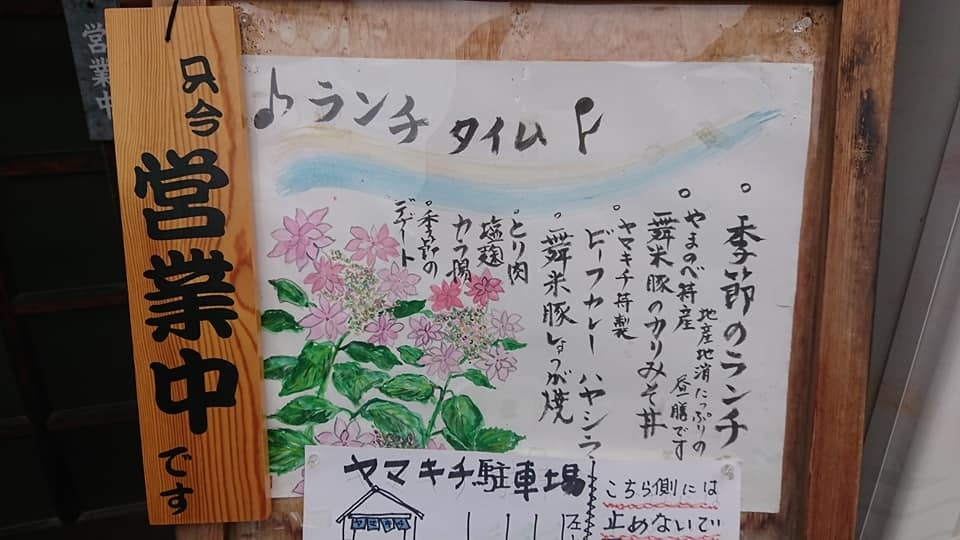 営業中
只今
営業中
です
ランチタイム
。季節のランチ
地産地消たっぷりの
昼膳です
。やまのべ特産
舞米豚のカリみそ丼
。ヤマキチ特製
ビーフカレー ハヤシラ
。舞米豚しょうが焼
。とり肉
塩麹
カラ揚
。季節の
デザート
ヤマキチ駐車場
ヤマキチ
こちら側には
止めないで